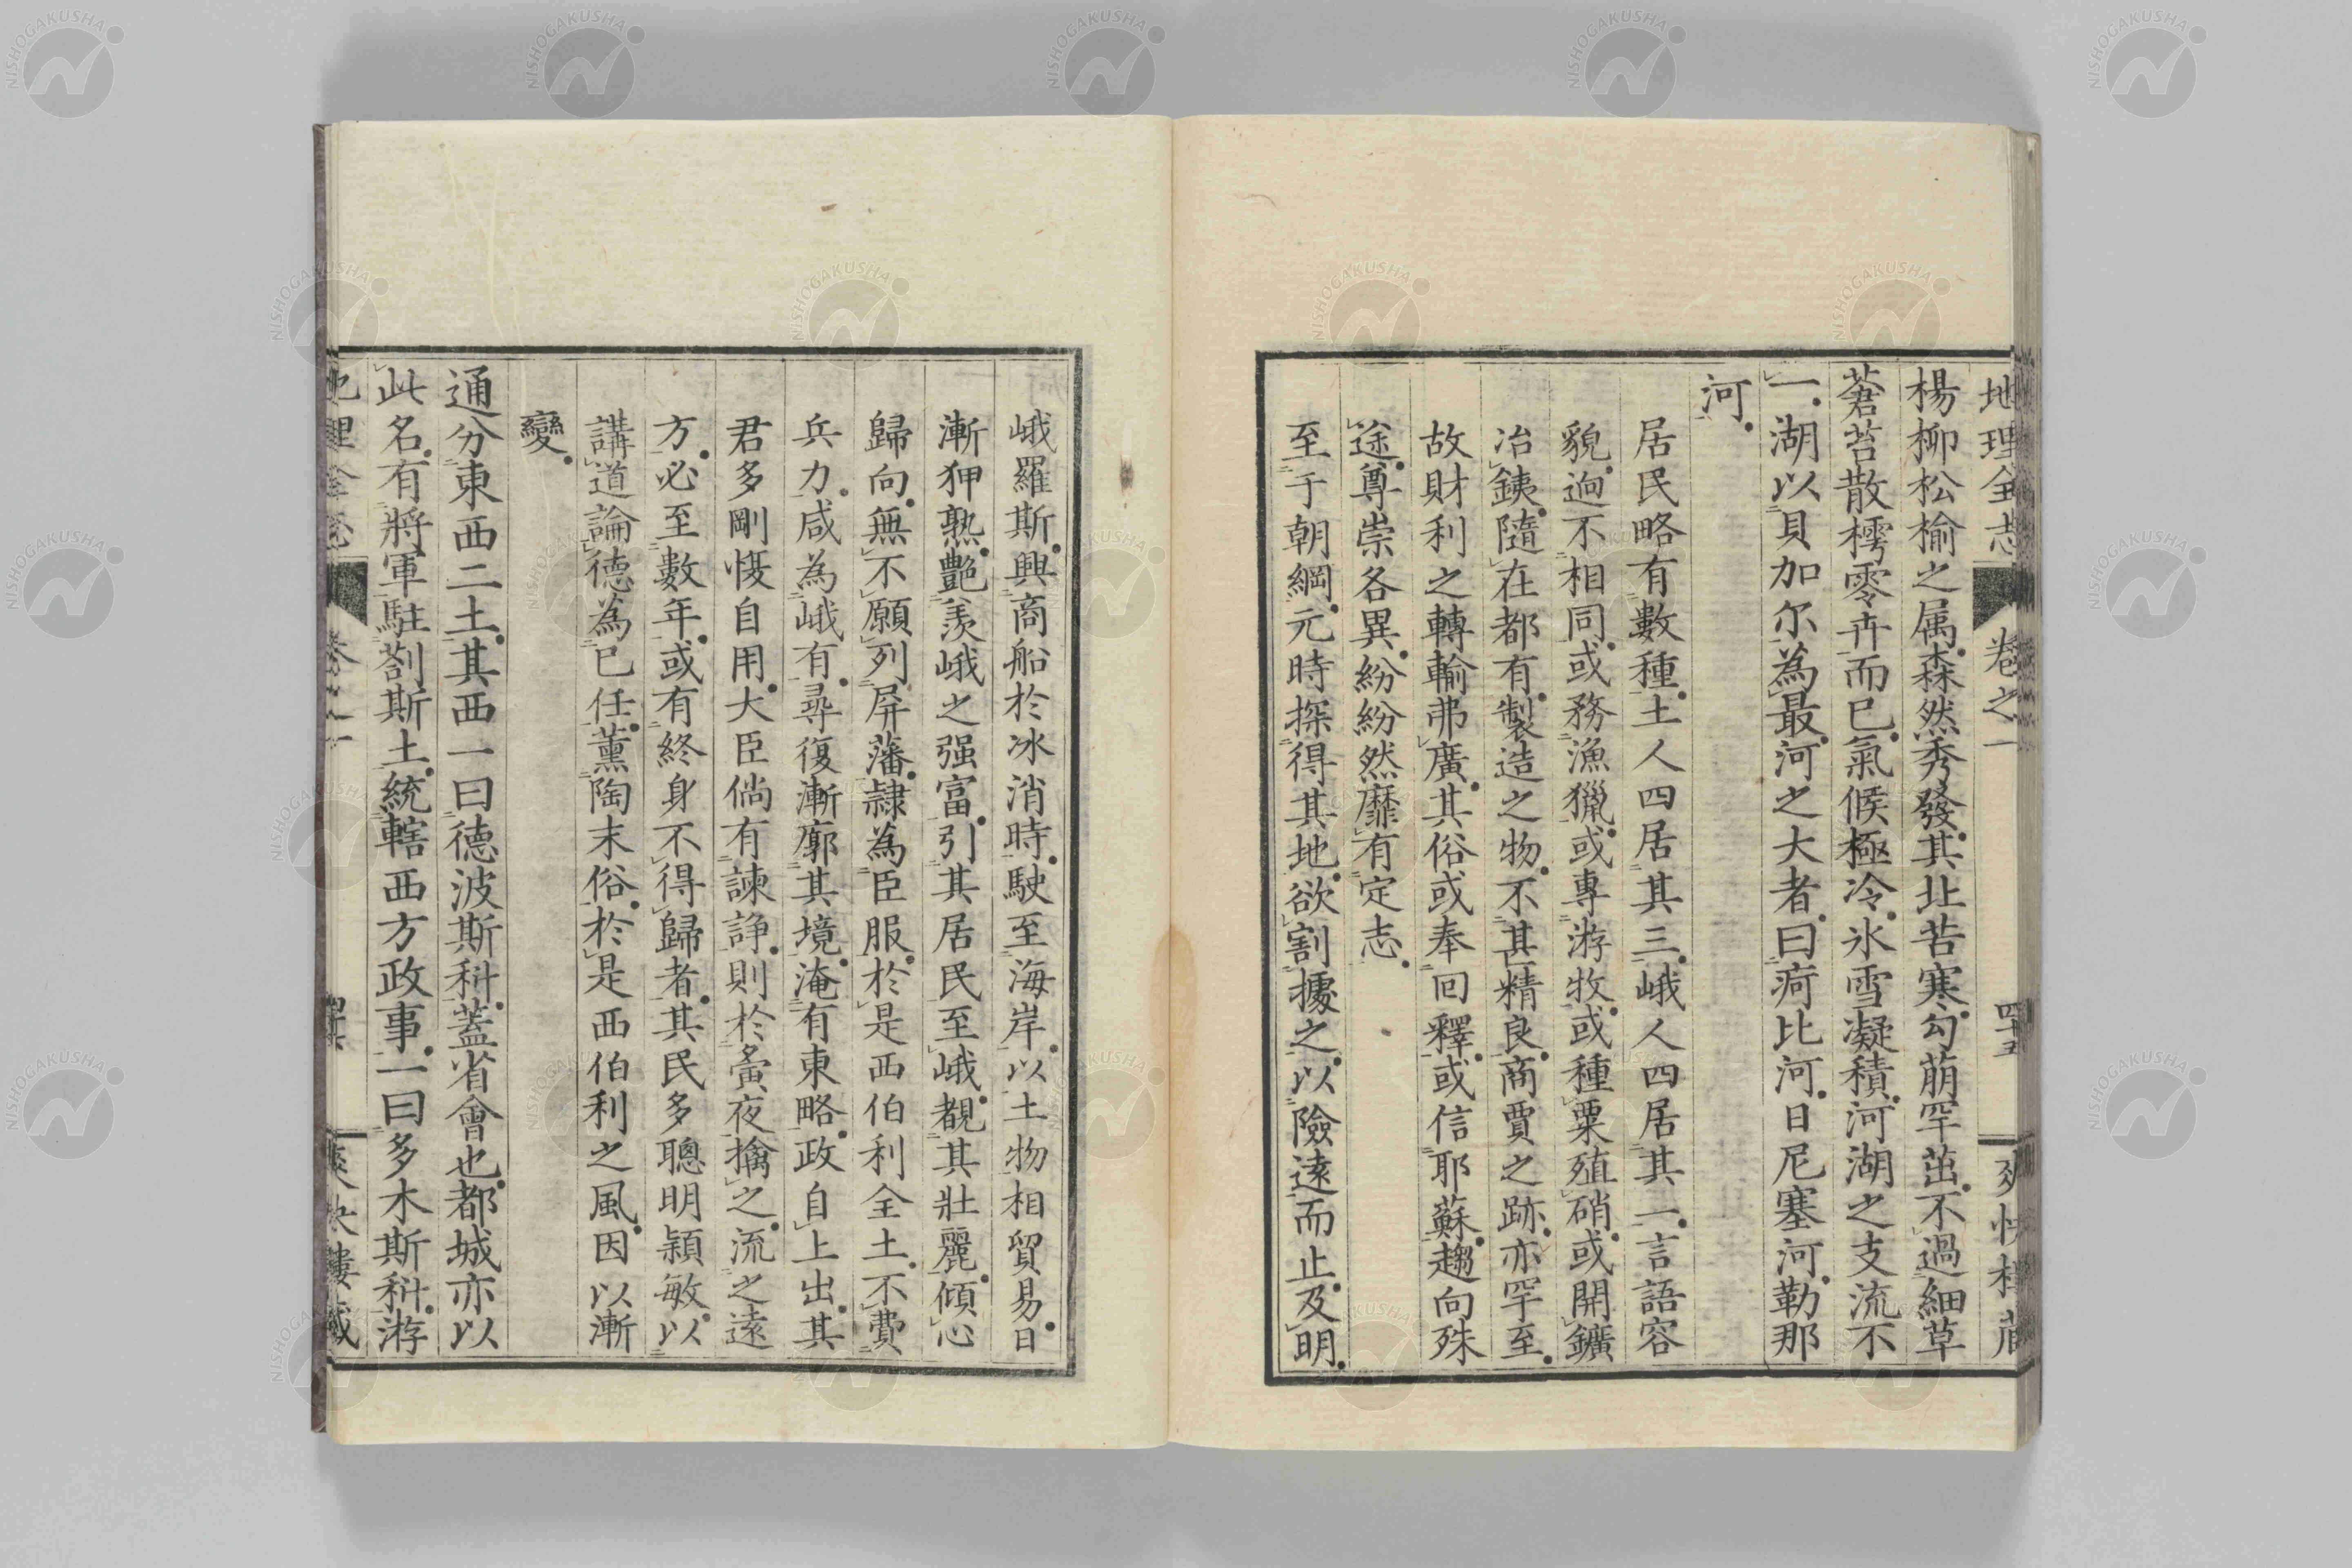 地理全志 卷之一 四十五 爽快樓蔵
楊柳松榆之属。森然秀發。其北苦寒。勾萠罕茁。不過細草
蒼苔散樗零卉而已。氣候極冷。氷雪凝積。河湖之支流不
一。湖以貝加尔為最。河之大者。曰疴比河。日尼塞河。勒那
河。
居民略有數種。土人四居其三。峨人四居其一。言語容
貌。迥不相同。或務漁獵。或專游牧。或種粟殖硝。或開鑛
冶銕。隨在都有。製造之物。不甚精良。商賈之跡。亦罕至。
故財利之轉輸弗廣。其俗或奉回釋。或信耶蘇。趨向殊
途。尊崇各異。紛紛然靡有定志。
至于朝綱。元時探得其地。欲割據之。以險遠而止。及明。
峨羅斯。興商船於冰消時。駛至海岸。以土物相貿易。日
漸狎熟。艶羨峨之强富。引其居民至峨。覩其壯麗。傾心
歸向。無不願列屏藩。隷為臣服。於是西伯利全土。不費
兵力。咸為峨有。尋復漸廓其境。淹有東略。政自上出。其
君多剛愎自用。大臣倘有諫諍。則於夤夜擒之。流之遠
方。必至數年。或有終身不得歸者。其民多聰明穎敏。以
講道論德為已任。薰陶末俗。於是西伯利之風。因以漸
變。
通分東西二土。其西一曰德波斯科。蓋省會也。都城亦以
此名。有將軍駐劄斯土。統轄西方政事。一曰多木斯科。游